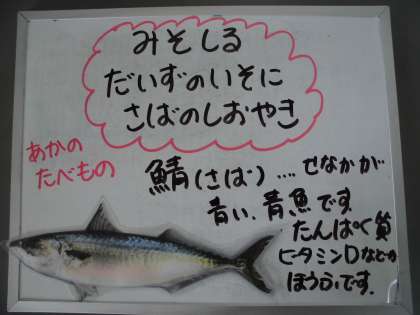 みそしる
だいずのいそに
さばのしおやき
あかの
たべもの
鯖(さば)....せなかが
青い、青魚です
たんぱく質
ビタミンDなどが
ほうふです.